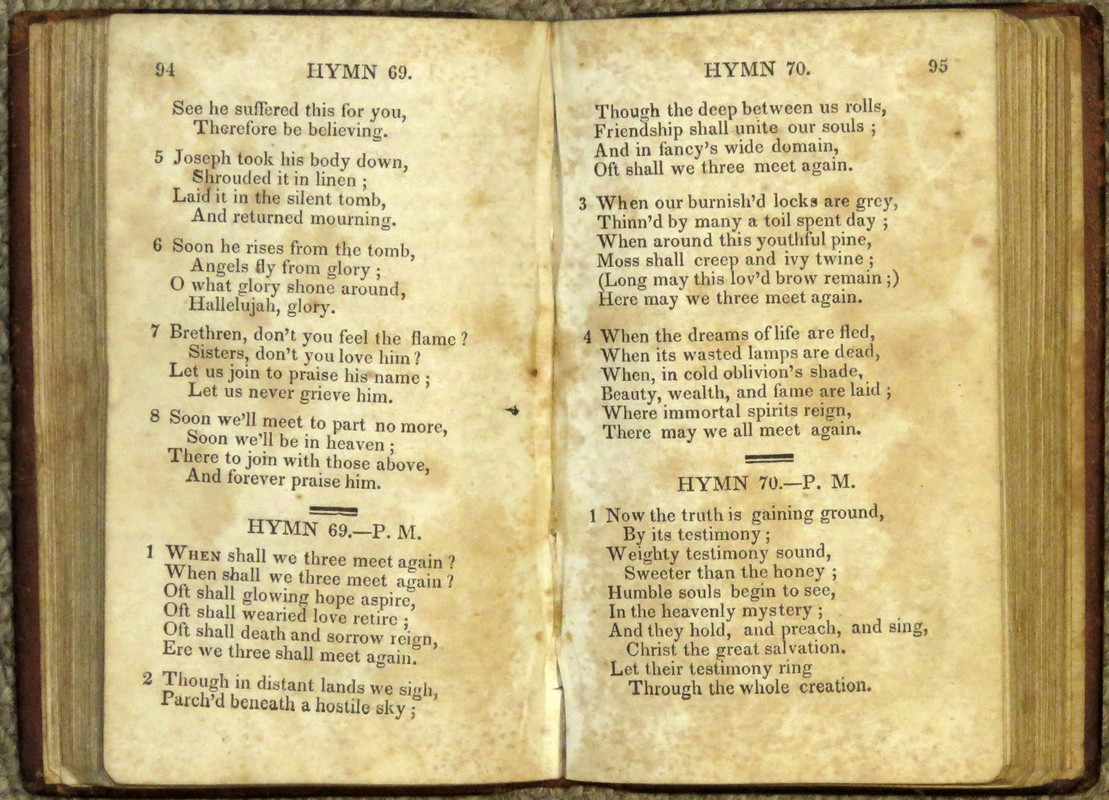 94 HYMN 69.
See he suffered this for you,
Therefore be believing.
5 Joseph took his body down,
Shrouded it in linen ;
Laid it in the silent tomb,
And returned mourning.
6 Soon he rises from the tomb,
Angels fly from glory ;
O what glory shone around,
Hallelujah, glory.
7 Brethren, don't you feel the flame ?
Sisters, don't you love him ?
Let us join to praise his name ;
Let us never grieve him.
8 Soon we'll meet to part no more,
Soon we'll be in heaven ;
There to join with those above,
And forever praise him.
HYMN 69.—P. M.
1 WHEN shall we three meet again ?
When shall we three meet again ?
Oft shall glowing hope aspire,
Oft shall wearied love retire ;
Oft shall death and sorrow reign,
Ere we three shall meet again.
2 Though in distant lands we sigh,
Parch'd beneath a hostile sky ;
HYMN 70. 95
Though the deep between us rolls,
Friendship shall unite our souls ;
And in fancy's wide domain,
Oft shall we three meet again.
3 When our burnish'd locks are grey,
Thinn'd by many a toil spent day ;
When around this youthful pine,
Moss shall creep and ivy twine ;
(Long may this lov'd brow remain ;)
Here may we three meet again.
4 When the dreams of life are fled,
When its wasted lamps are dead,
When, in cold oblivion's shade,
Beauty, wealth, and fame are laid ;
Where immortal spirits reign,
There may we all meet again.
HYMN 70.—P. M.
1 Now the truth is gaining ground,
By its testimony ;
Weighty testimony sound,
Sweeter than the honey ;
Humble souls begin to see,
In the heavenly mystery ;
And they hold, and preach, and sing,
Christ the great salvation.
Let their testimony ring
Through the whole creation.